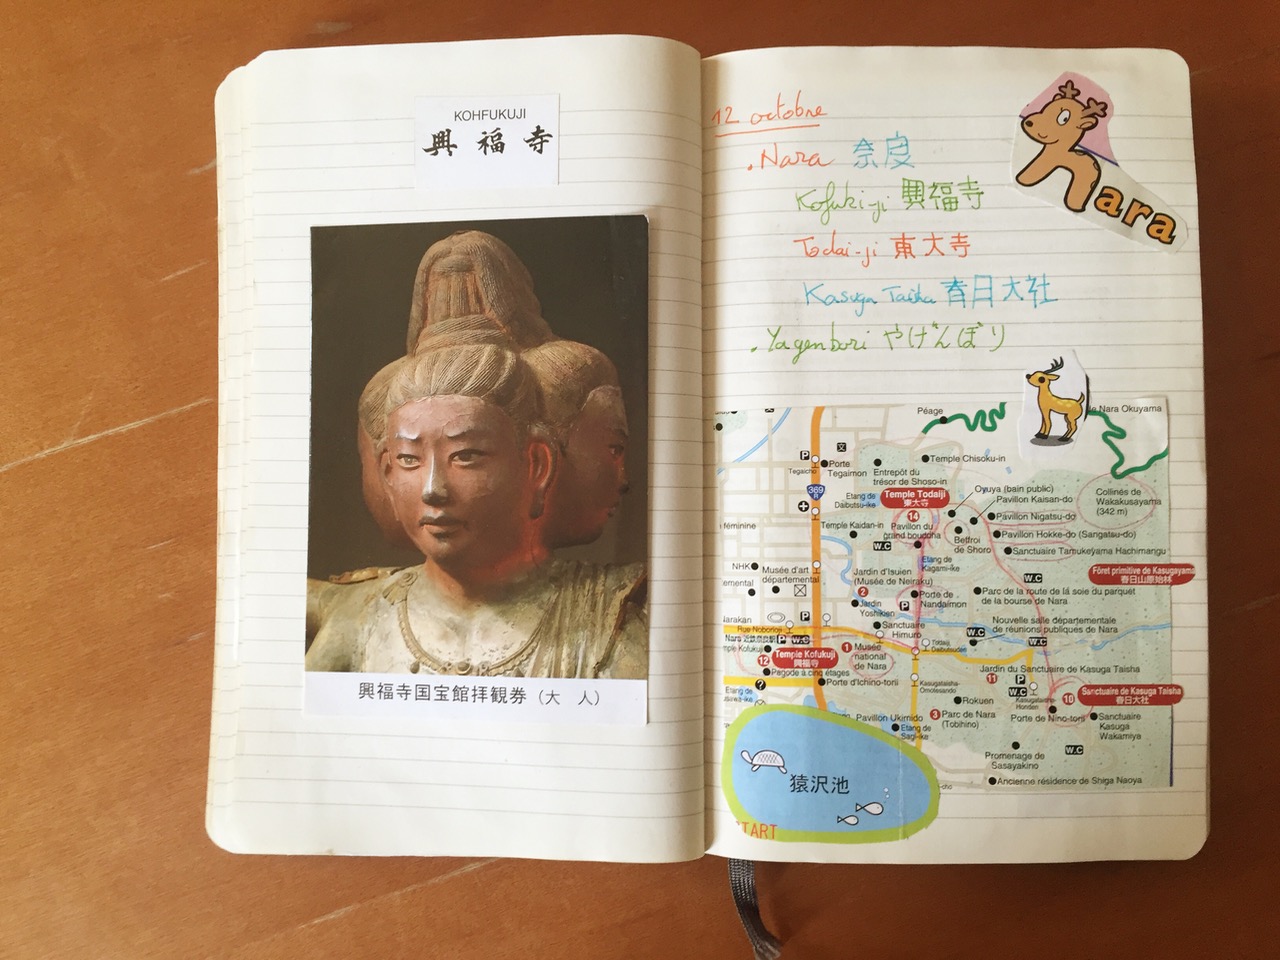 KOHFUKUJI
興福寺
興福寺国宝館拝観券（大 人）
12 octobre
. Nara 奈良
Kofuki-ji 興福寺
Todai-ji 東大寺
Kasuga Taisha 春日大社
. Yagenbori やげんぼり
Nara
Péage
de Nara Okuyama
Porte
Tegaimon
Tegaicho
Temple Chisoku-in
Entrepôt du
trésor de Shoso-in
369
Etang de
Daibutsu-ike
Temple Todaiji
東大寺
14
Oyuya (bain public)
Pavillon Kaisan-do
Collines de
Wakakusayama
(342 m)
féminine
Temple Kaidan-in
Pavillon du
grand bouddha
Pavillon Nigatsu-do
Beffroi
de Shoro
Pavillon Hokke-do (Sangatsu-do)
W.C
Sanctuaire Tamukeyama Hachimangu
NHK
Musée d'art
départemental
emental
Etang de
Kagami-ike
Jardin d'Isuien
(Musée de Neiraku)
2
W.C
Fôret primitive de Kasugayama
春日山原始林
Jardin
Yoshikien
Porte de
Nandaimon
Parc de la route de la soie du parquet
de la bourse de Nara
Sanctuaire
Himuro
Nouvelle salle départementale
de réunions publiques de Nara
W.C
W.C
Rue Noborioji
Nara 近鉄奈良駅
W.C
Todaiji
Daibutsuden
Temple Kofukuji
興福寺
12
1
Musée
national
de Nara
Pagode à cinq étages
Porte d'Ichino-torii
Jardin du Sanctuaire de Kasuga Taisha
11
W.C
10
Sanctuaire de Kasuga Taisha
春日大社
Etang de
Kasugataisha-
Omotesando
Kasugataisha-
Honden
Rokuen
Pavillon Ukimido
3
Parc de Nara
(Tobihino)
Porte de Nino-torii
Sanctuaire
Kasuga
Wakamiya
Etang de
Sagi-ike
Promenade de
Sasayakino
W.C
Ancienne résidence de Shiga Naoya
猿沢池
START